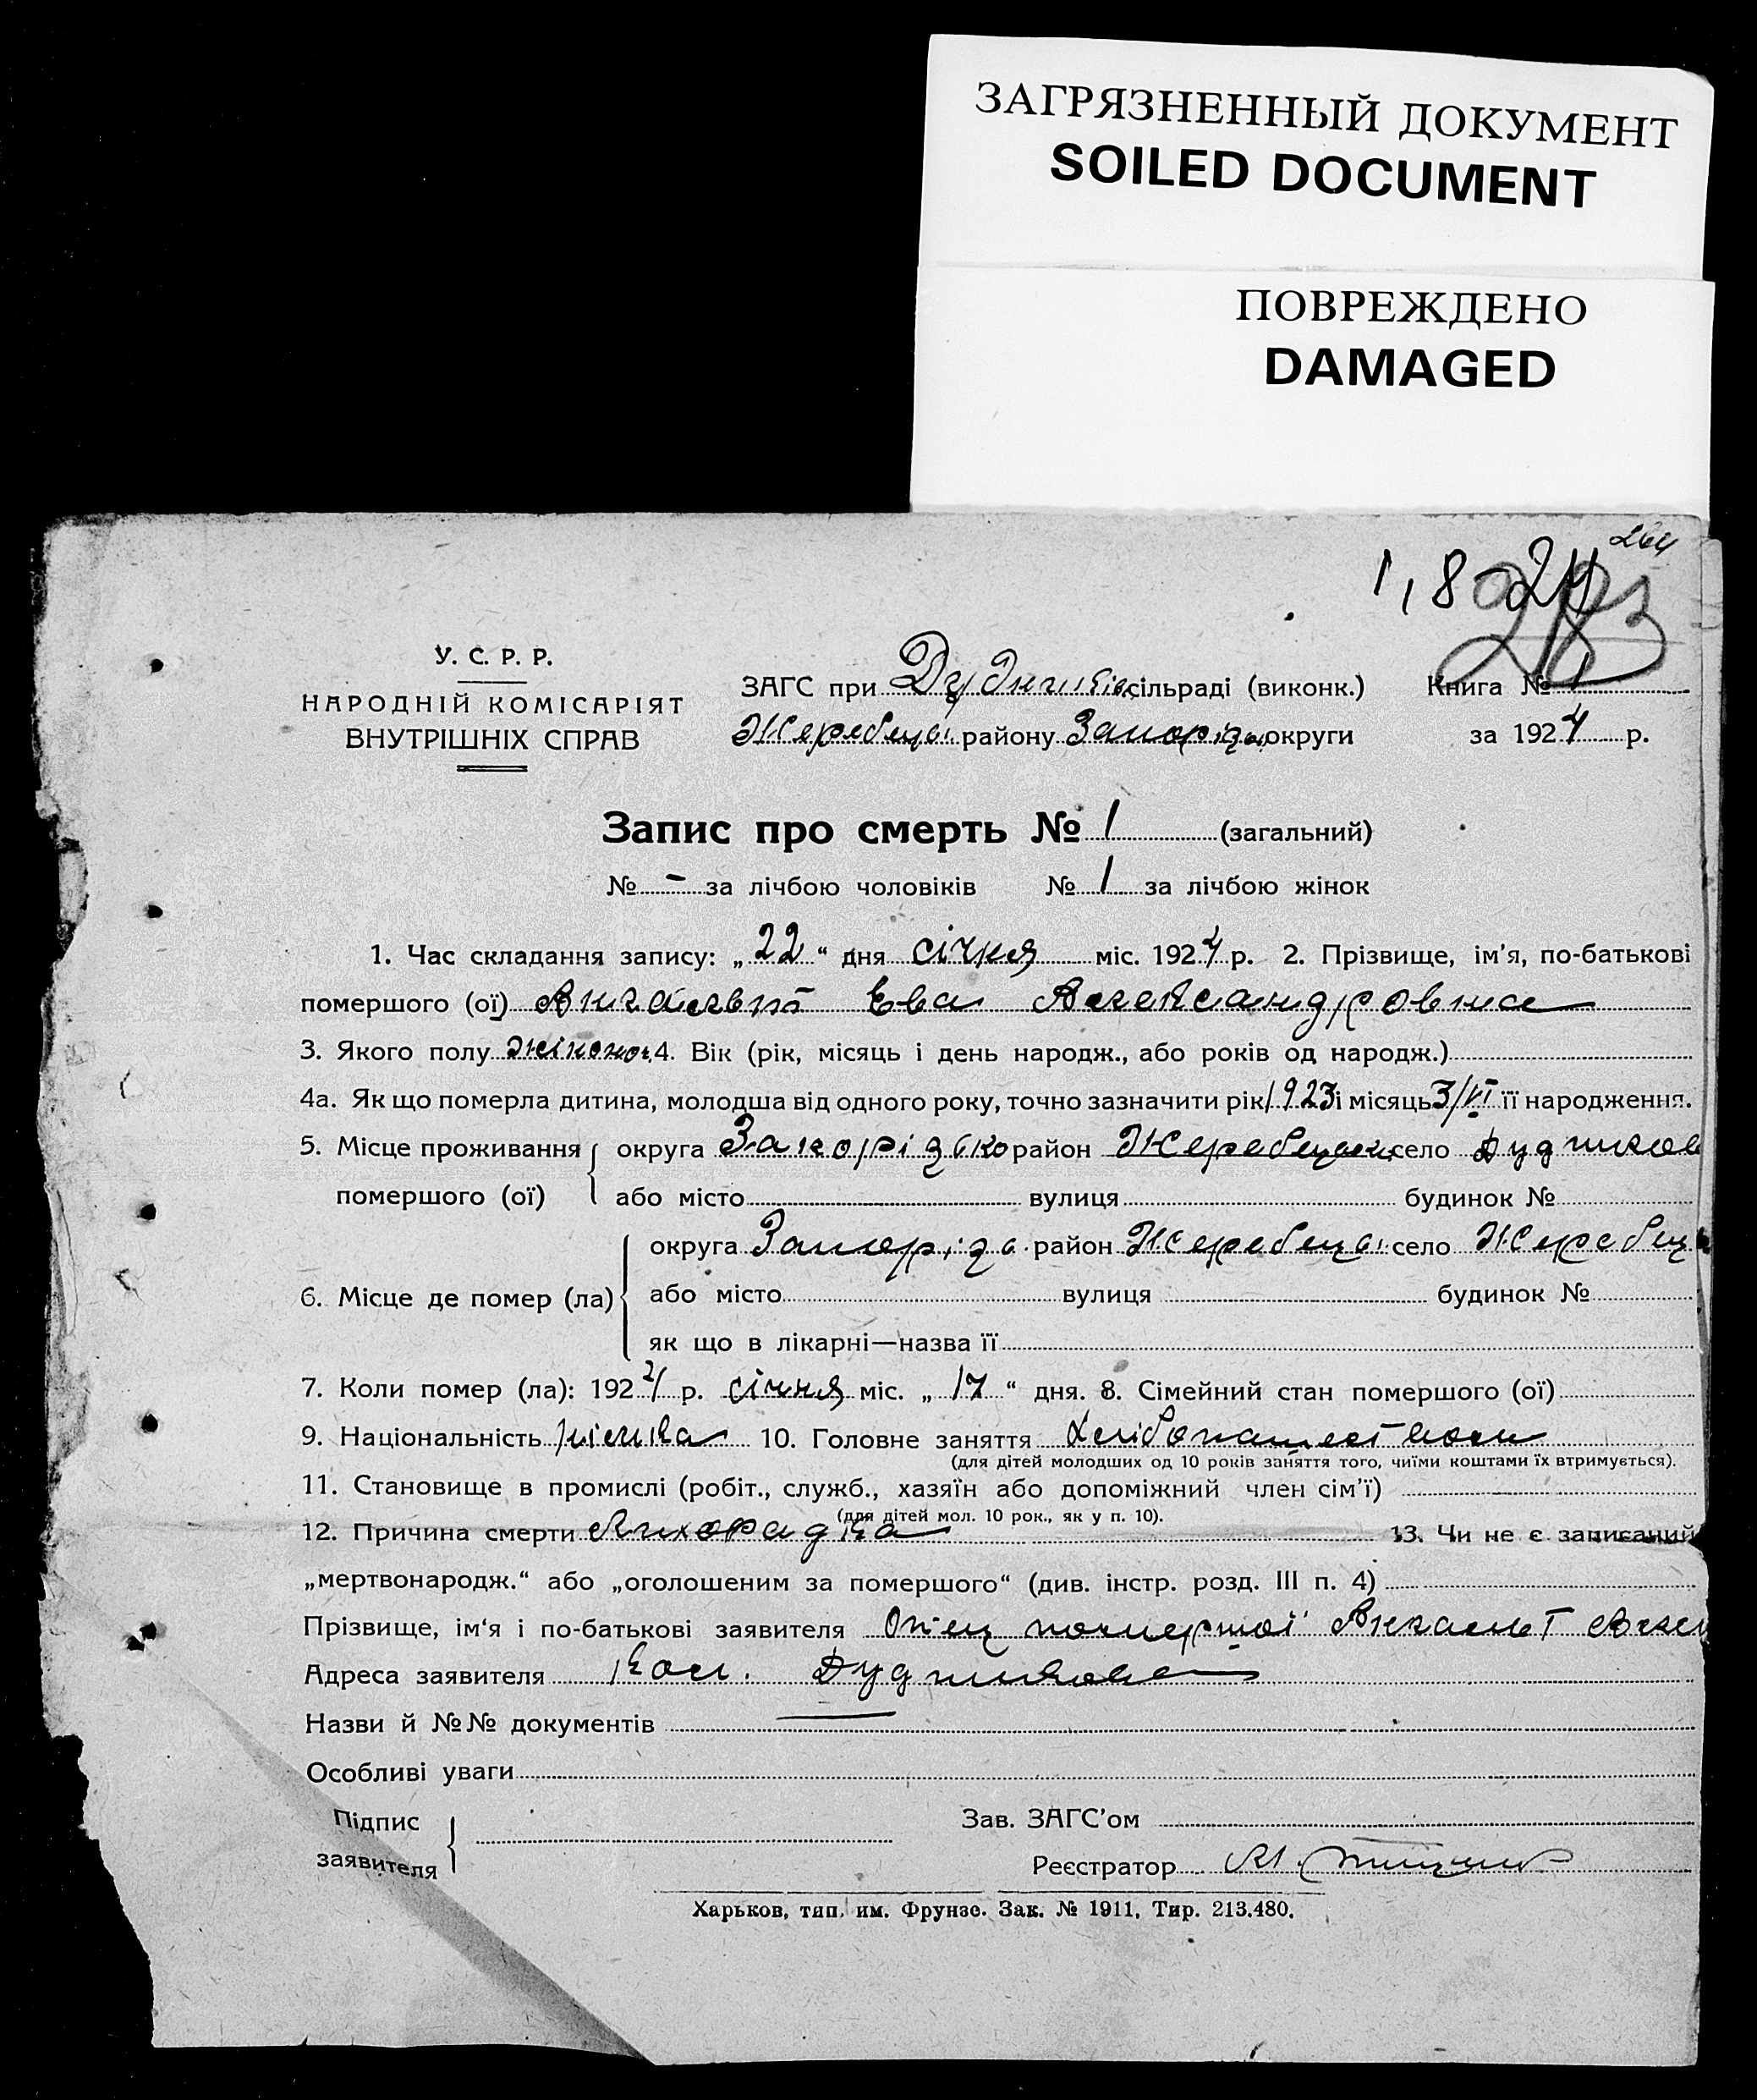 ЗАГРЯЗНЕННЫЙ ДОКУМЕНТ
SOILED DOCUMENT
ПОВРЕЖДЕНО
DAMAGED
264
1,8-24
283
У. С. Р. Р.
НАРОДНІЙ КОМІСАРІЯТ
ВНУТРІШНІХ СПРАВ
ЗАГС при сільраді (виконк.) Книга № 1
Жеребець району Запоріз округи за 1924 р.
Запис про смерть № 1 (загальний)
№ - за лічбою чоловіків № 1 за лічбою жінок
1. Час складання запису: „22“ дня січня міс. 1924 р. 2. Прізвище, ім'я, по-батькові
помершого (ої) Ева Александровна
3. Якого полу жіночо 4. Вік (рік, місяць і день народж., або років од народж.)
4а. Як що померла дитина, молодша від одного року, точно зазначити рік 1923 і місяць 3/VI її народження.
5. Місце проживання округа Запорізько район село
помершого (ої) або місто вулиця будинок №
6. Місце де помер (ла) округа Запоріз район село Жеребец
або місто вулиця будинок №
як що в лікарні—назва її
7. Коли помер (ла): 1924 р. січня міс. „17“ дня. 8. Сімейний стан помершого (ої)
9. Національність 10. Головне заняття
(для дітей молодших од 10 років заняття того, чиїми коштами їх втримується).
11. Становище в промислі (робіт., служб., хазяїн або допоміжний член сім'ї)
(для дітей мол. 10 рок., як у п. 10).
12. Причина смерти Лихорадка 13. Чи не є записаний
„мертвонародж.“ або „оголошеним за помершого“ (див. інстр. розд. III п. 4)
Прізвище, ім'я і по-батькові заявителя Отец помершої
Адреса заявителя кол.
Назви й №№ документів —
Особливі уваги
Підпис заявителя
Зав. ЗАГС'ом
Реєстратор
Харьков, тип. им. Фрунзе. Зак. № 1911, Тир. 213.480.